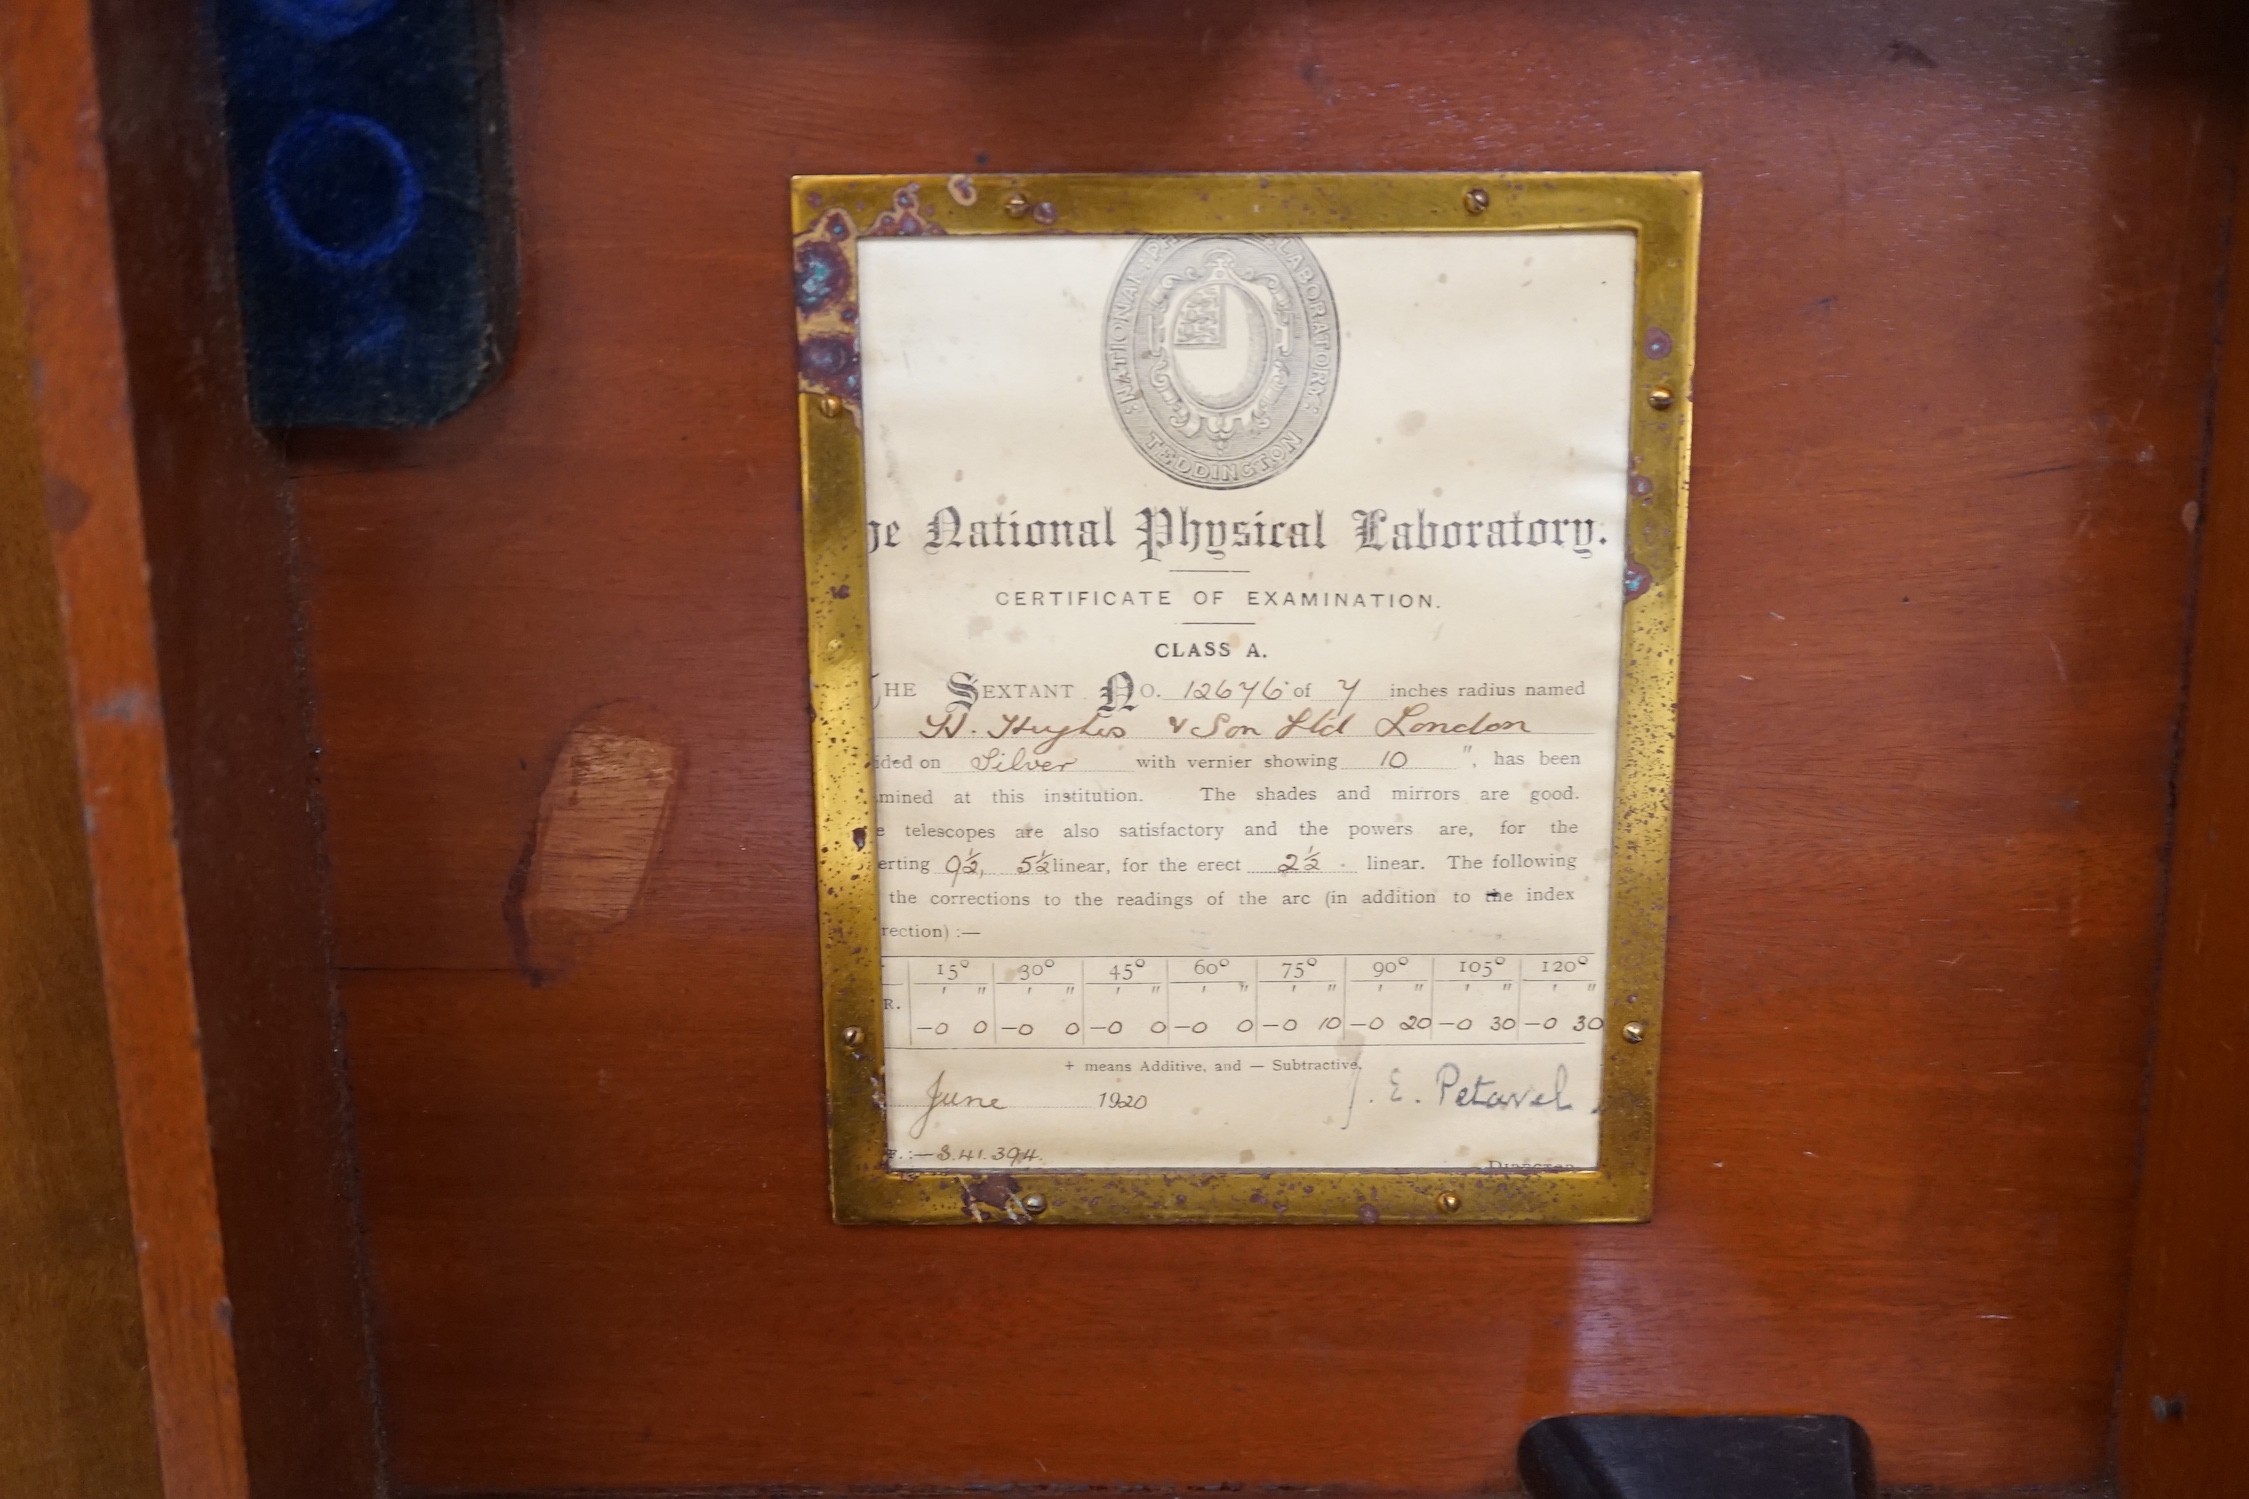 NATIONAL PH LABORATORY
TEDDINGTON
he National Physical Laboratory.
CERTIFICATE OF EXAMINATION.
CLASS A.
THE SEXTANT No. 12676 of 7 inches radius named
H. Hughes & Son Ltd London
ided on Silver with vernier showing 10 ", has been
mined at this institution. The shades and mirrors are good.
e telescopes are also satisfactory and the powers are, for the
erting 9½, 5½ linear, for the erect 2½ - linear. The following
the corrections to the readings of the arc (in addition to the index
rection) :—
15° 30° 45° 60° 75° 90° 105° 120°
' " ' " ' " ' " ' " ' " ' " ' "
R.
—0 0 —0 0 —0 0 —0 0 —0 10 —0 20 —0 30 —0 30
+ means Additive, and — Subtractive.
June 1920 J. E. Petavel
.:—S.41.394.
DIRECTOR